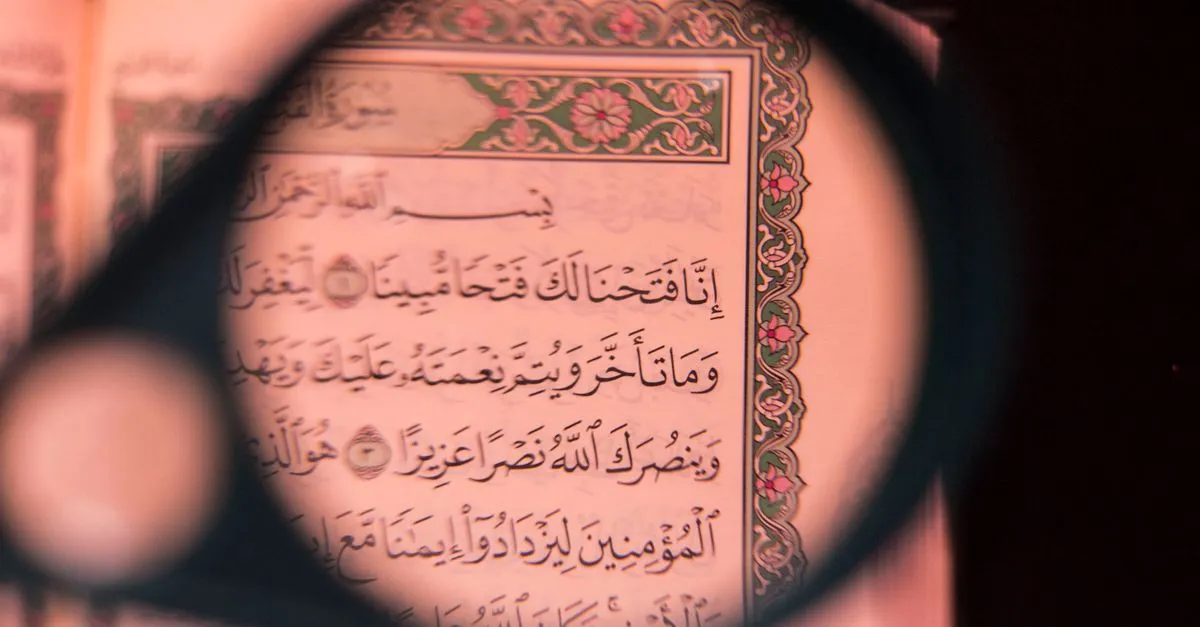 سورة الفتح
بِسْمِ ٱللَّهِ ٱلرَّحْمَٰنِ
إِنَّا فَتَحْنَا لَكَ فَتْحًا مُّبِينًا ١ لِّيَغْفِرَ لَكَ
وَمَا تَأَخَّرَ وَيُتِمَّ نِعْمَتَهُۥ عَلَيْكَ وَيَهْدِ
وَيَنصُرَكَ ٱللَّهُ نَصْرًا عَزِيزًا ٣ هُوَ ٱلَّذِي
ٱلْمُؤْمِنِينَ لِيَزْدَادُوٓا۟ إِيمَٰنًا مَّعَ